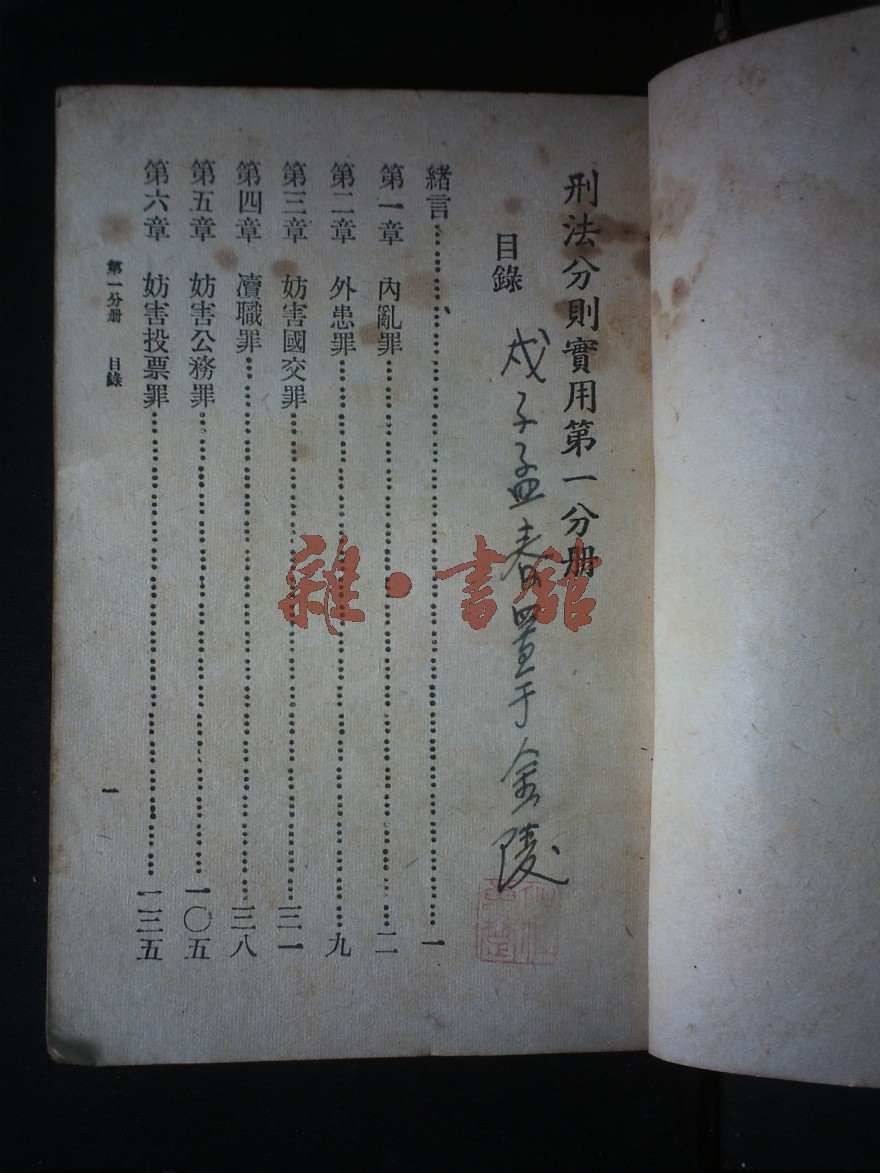 刑法分則實用第一分册
目錄
戊子孟春置于金陵
緒言……一
第一章 內亂罪……二
第二章 外患罪……九
第三章 妨害國交罪……三一
第四章 瀆職罪……三八
第五章 妨害公務罪……一〇五
第六章 妨害投票罪……一三五
第一分册 目錄 一
雜·書館